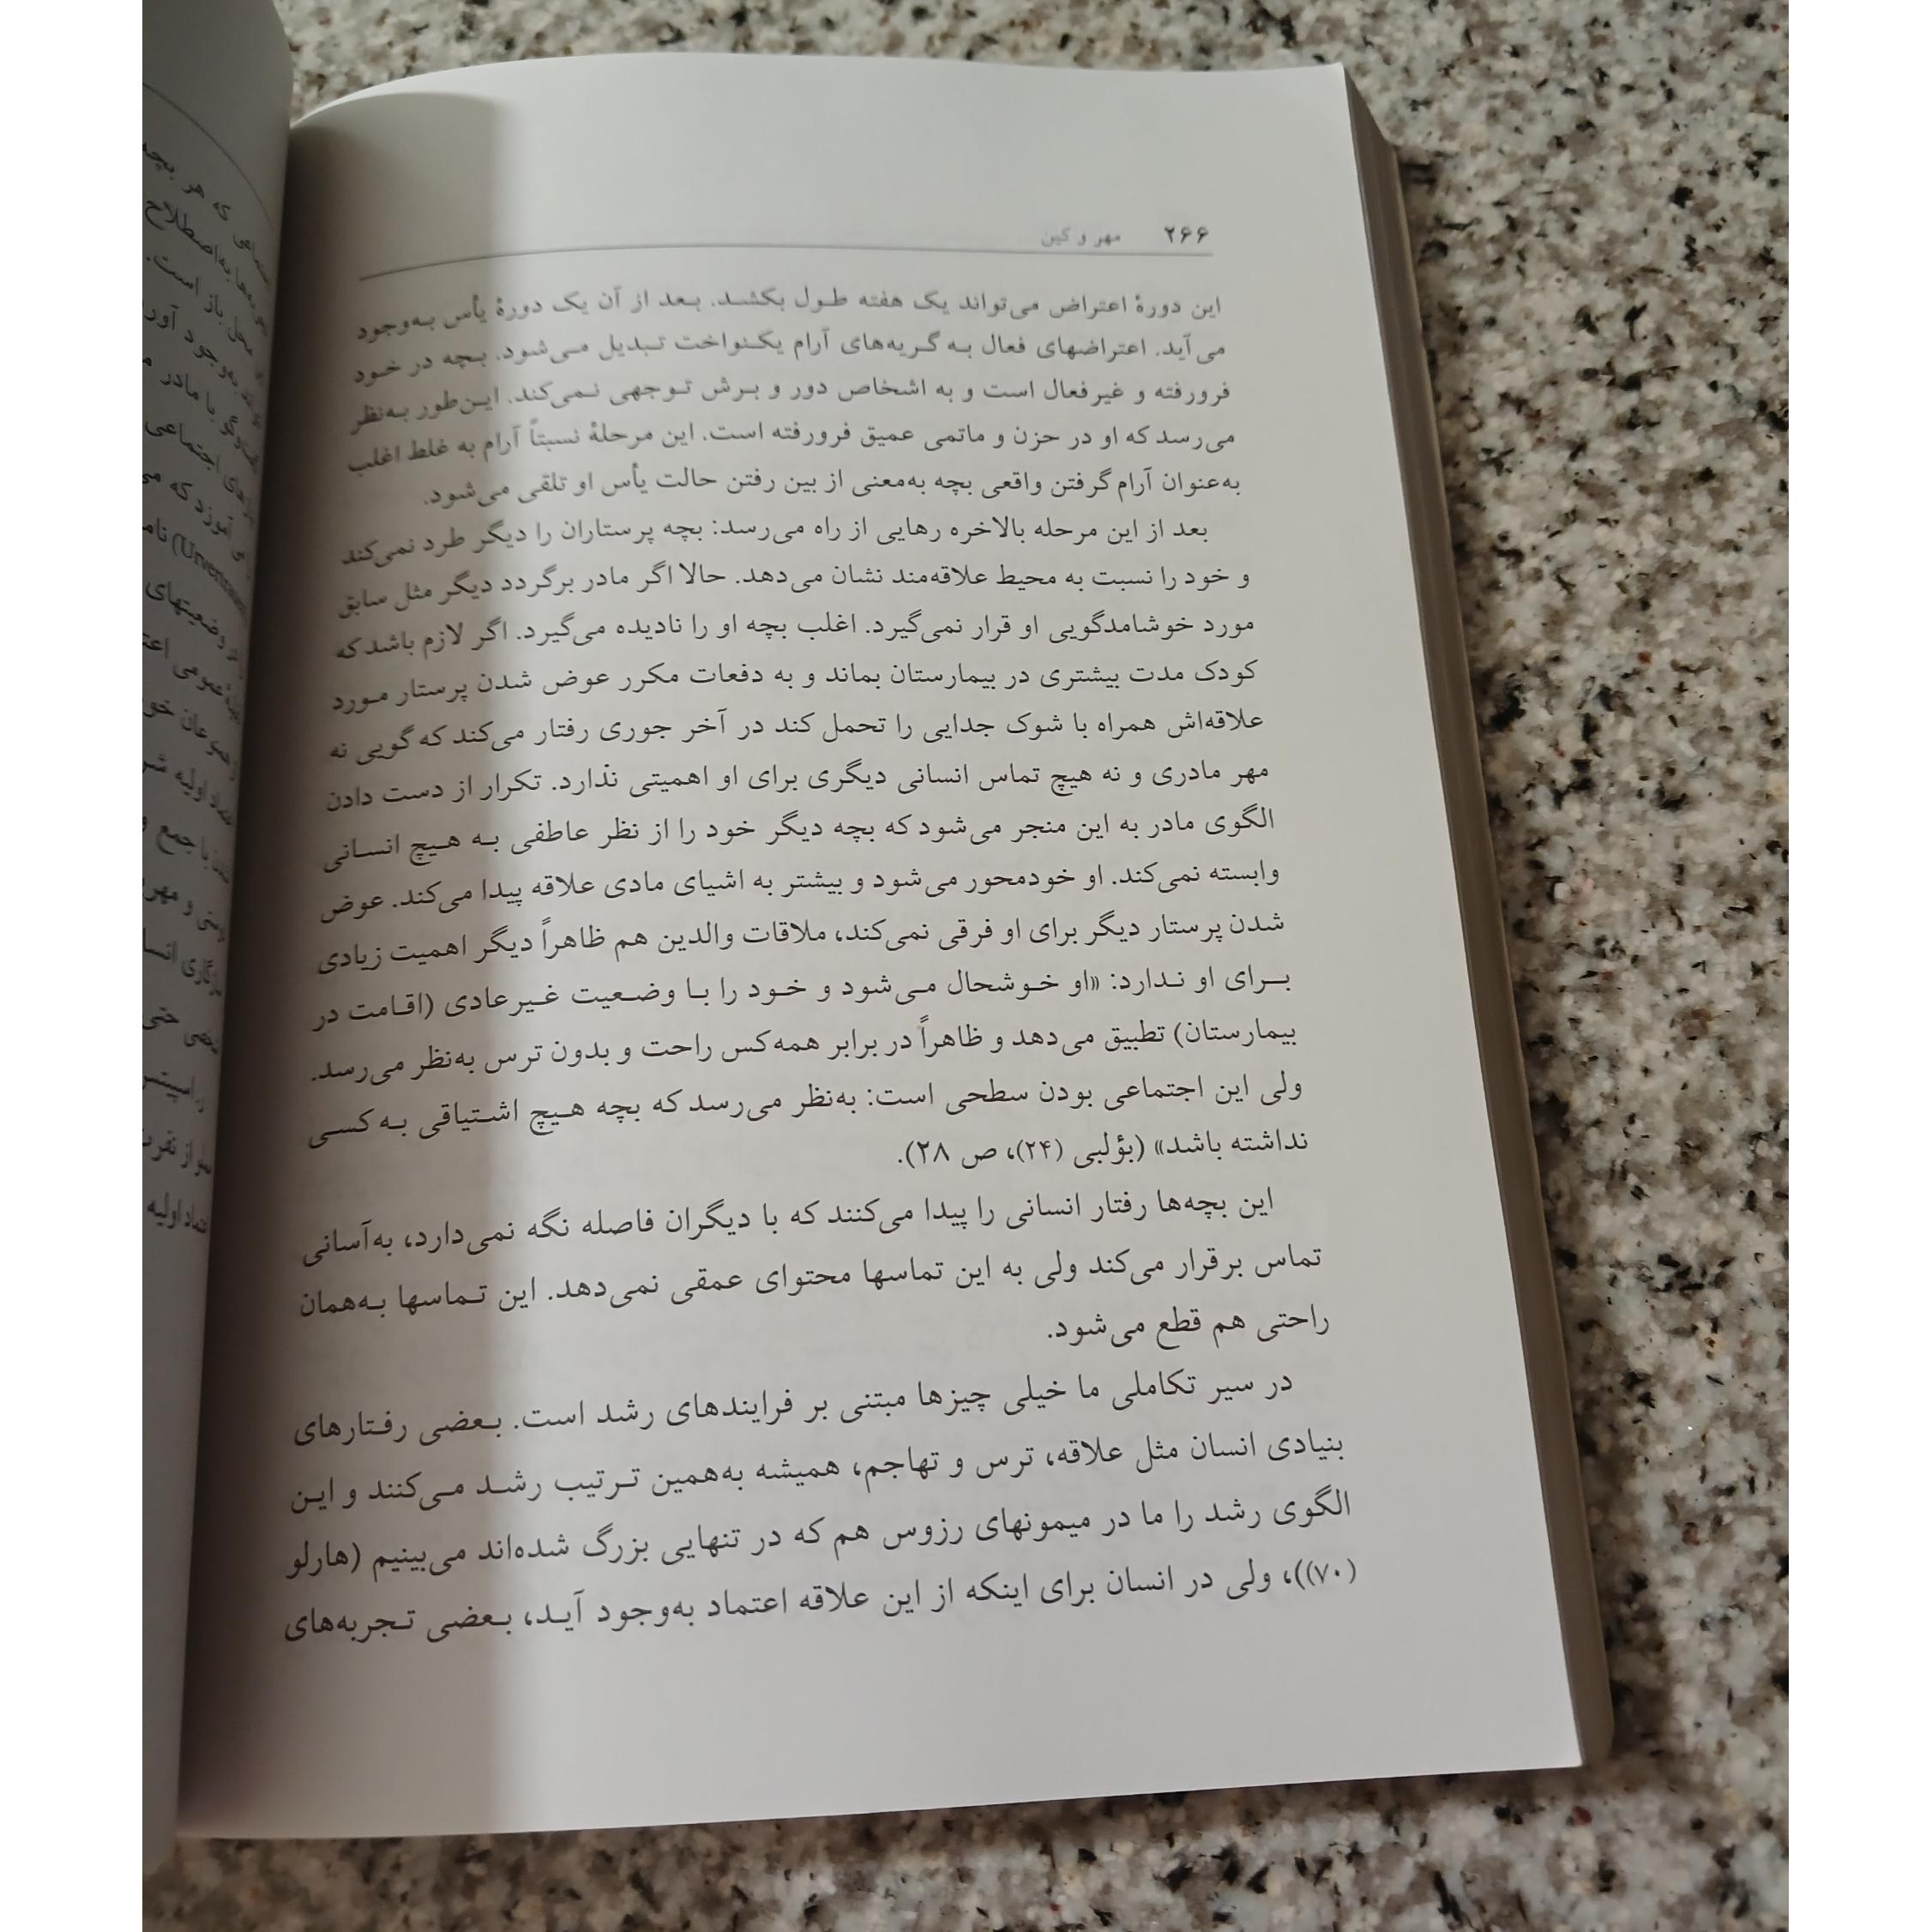 ۲۶۶ مهر و کین
این دورهٔ اعتراض می‌تواند یک هفته طول بکشد. بعد از آن یک دورهٔ یأس به‌وجود
می‌آید. اعتراضهای فعال به گریه‌های آرام یکنواخت تبدیل می‌شود. بچه در خود
فرورفته و غیرفعال است و به اشخاص دور و برش توجهی نمی‌کند. این‌طور به‌نظر
می‌رسد که او در حزن و ماتمی عمیق فرورفته است. این مرحلهٔ نسبتاً آرام به غلط اغلب
به‌عنوان آرام گرفتن واقعی بچه به‌معنی از بین رفتن حالت یأس او تلقی می‌شود.
بعد از این مرحله بالاخره رهایی از راه می‌رسد: بچه پرستاران را دیگر طرد نمی‌کند
و خود را نسبت به محیط علاقه‌مند نشان می‌دهد. حالا اگر مادر برگردد دیگر مثل سابق
مورد خوشامدگویی او قرار نمی‌گیرد. اغلب بچه او را نادیده می‌گیرد. اگر لازم باشد که
کودک مدت بیشتری در بیمارستان بماند و به دفعات مکرر عوض شدن پرستار مورد
علاقه‌اش همراه با شوک جدایی را تحمل کند در آخر جوری رفتار می‌کند که گویی نه
مهر مادری و نه هیچ تماس انسانی دیگری برای او اهمیتی ندارد. تکرار از دست دادن
الگوی مادر به این منجر می‌شود که بچه دیگر خود را از نظر عاطفی به هیچ انسانی
وابسته نمی‌کند. او خودمحور می‌شود و بیشتر به اشیای مادی علاقه پیدا می‌کند. عوض
شدن پرستار دیگر برای او فرقی نمی‌کند، ملاقات والدین هم ظاهراً دیگر اهمیت زیادی
برای او ندارد: «او خوشحال می‌شود و خود را با وضعیت غیرعادی (اقامت در
بیمارستان) تطبیق می‌دهد و ظاهراً در برابر همه‌کس راحت و بدون ترس به‌نظر می‌رسد.
ولی این اجتماعی بودن سطحی است: به‌نظر می‌رسد که بچه هیچ اشتیاقی به کسی
نداشته باشد» (بؤلبی (۲۴)، ص ۲۸).
این بچه‌ها رفتار انسانی را پیدا می‌کنند که با دیگران فاصله نگه نمی‌دارد، به‌آسانی
تماس برقرار می‌کند ولی به این تماسها محتوای عمقی نمی‌دهد. این تماسها به‌همان
راحتی هم قطع می‌شود.
در سیر تکاملی ما خیلی چیزها مبتنی بر فرایندهای رشد است. بعضی رفتارهای
بنیادی انسان مثل علاقه، ترس و تهاجم، همیشه به‌همین ترتیب رشد می‌کنند و این
الگوی رشد را ما در میمونهای رزوس هم که در تنهایی بزرگ شده‌اند می‌بینیم (هارلو
(۷۰))، ولی در انسان برای اینکه از این علاقه اعتماد به‌وجود آید، بعضی تجربه‌های